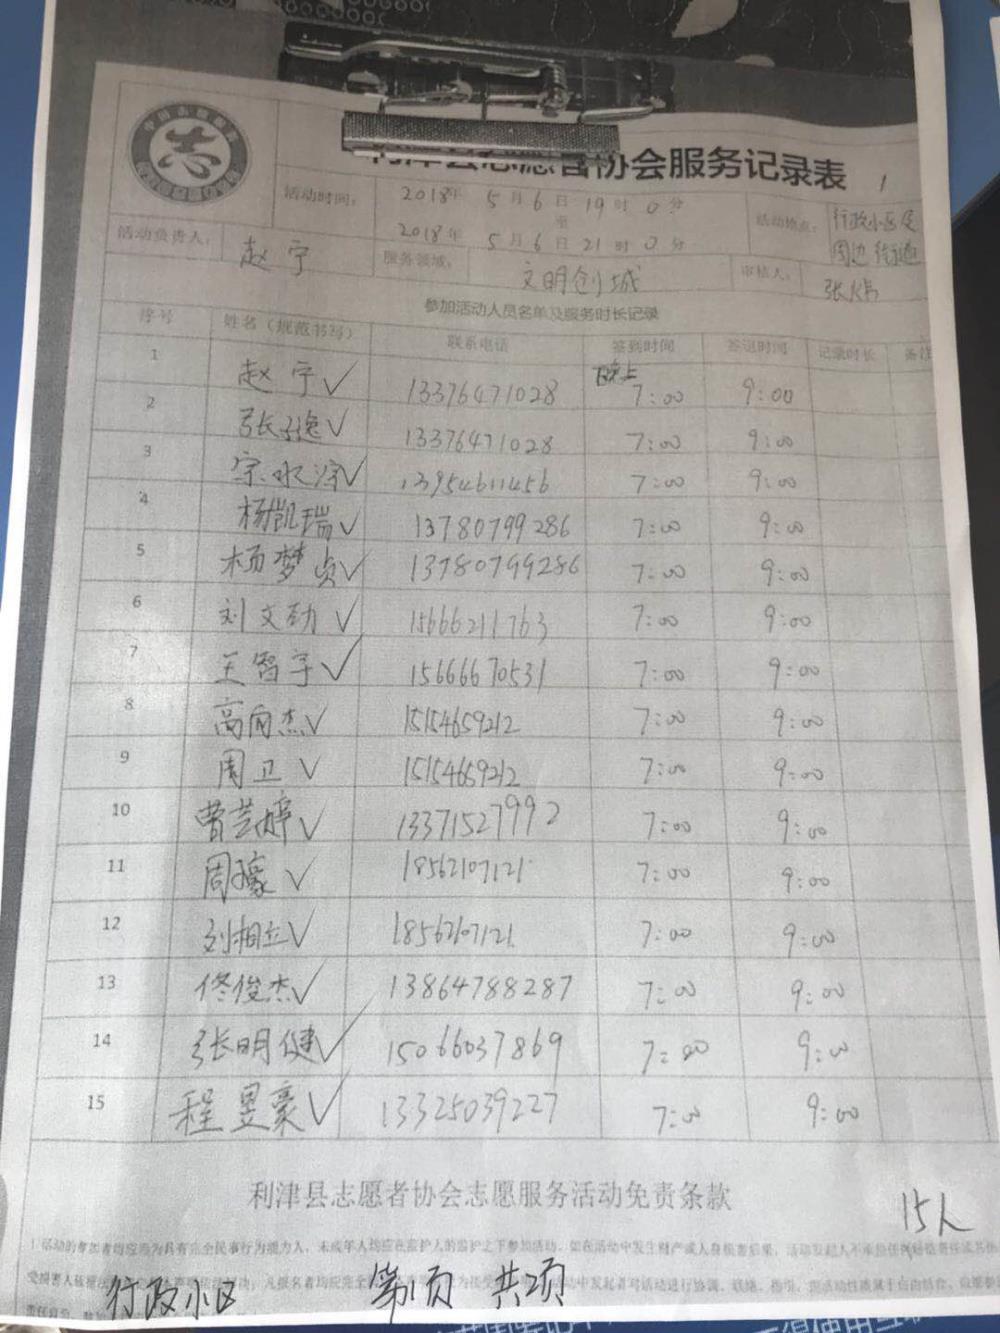 利津县志愿者协会服务记录表 1
活动时间: 2018年 5月6日19时0分 至 2018年 5月6日21时0分
活动地点: 行政小区及周边街道
活动负责人: 赵宁 服务领域: 文明创城 审核人:
参加活动人员名单及服务时长记录
序号 姓名（规范书写） 联系电话 签到时间 签退时间 记录时长 备注
1 赵宁✓ 13376471028 晚上7:00 9:00
2 张子逸✓ 13376471028 7:00 9:00
3 宗水淳✓ 13954611456 7:00 9:00
4 杨凯瑞✓ 13780799286 7:00 9:00
5 杨梦贞✓ 13780799286 7:00 9:00
6 刘文劼✓ 15666211763 7:00 9:00
7 王智宇✓ 15666670531 7:00 9:00
8 高向杰✓ 15154659212 7:00 9:00
9 周卫✓ 15154659212 7:00 9:00
10 曹芸婷✓ 13371527992 7:00 9:00
11 周璇✓ 18562107121 7:00 9:00
12 刘相立✓ 18562107121 7:00 9:00
13 佟俊杰✓ 13864788287 7:00 9:00
14 张明健✓ 15066037869 7:00 9:00
15 程昱豪✓ 13325039227 7:00 9:00
利津县志愿者协会志愿服务活动免责条款
15人
1 活动的参加者均应当为具有完全民事行为能力人，未成年人均应在监护人的监护之下参加活动。如在活动中发生财产或人身损害后果，活动发起人不承担任何
行政小区 第1页 共项